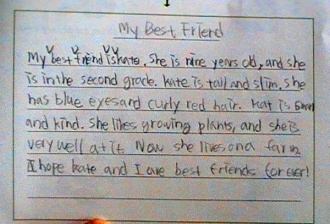 My Best Friend
My best friend is kate. She is nine years old, and she
is in the second grade. kate is tall and slim. She
has blue eyes and curly red hair. kat is
and kind. She likes growing plants, and she is
very well at it. Now she lives on a farm
I hope kate and I are best friends forever!